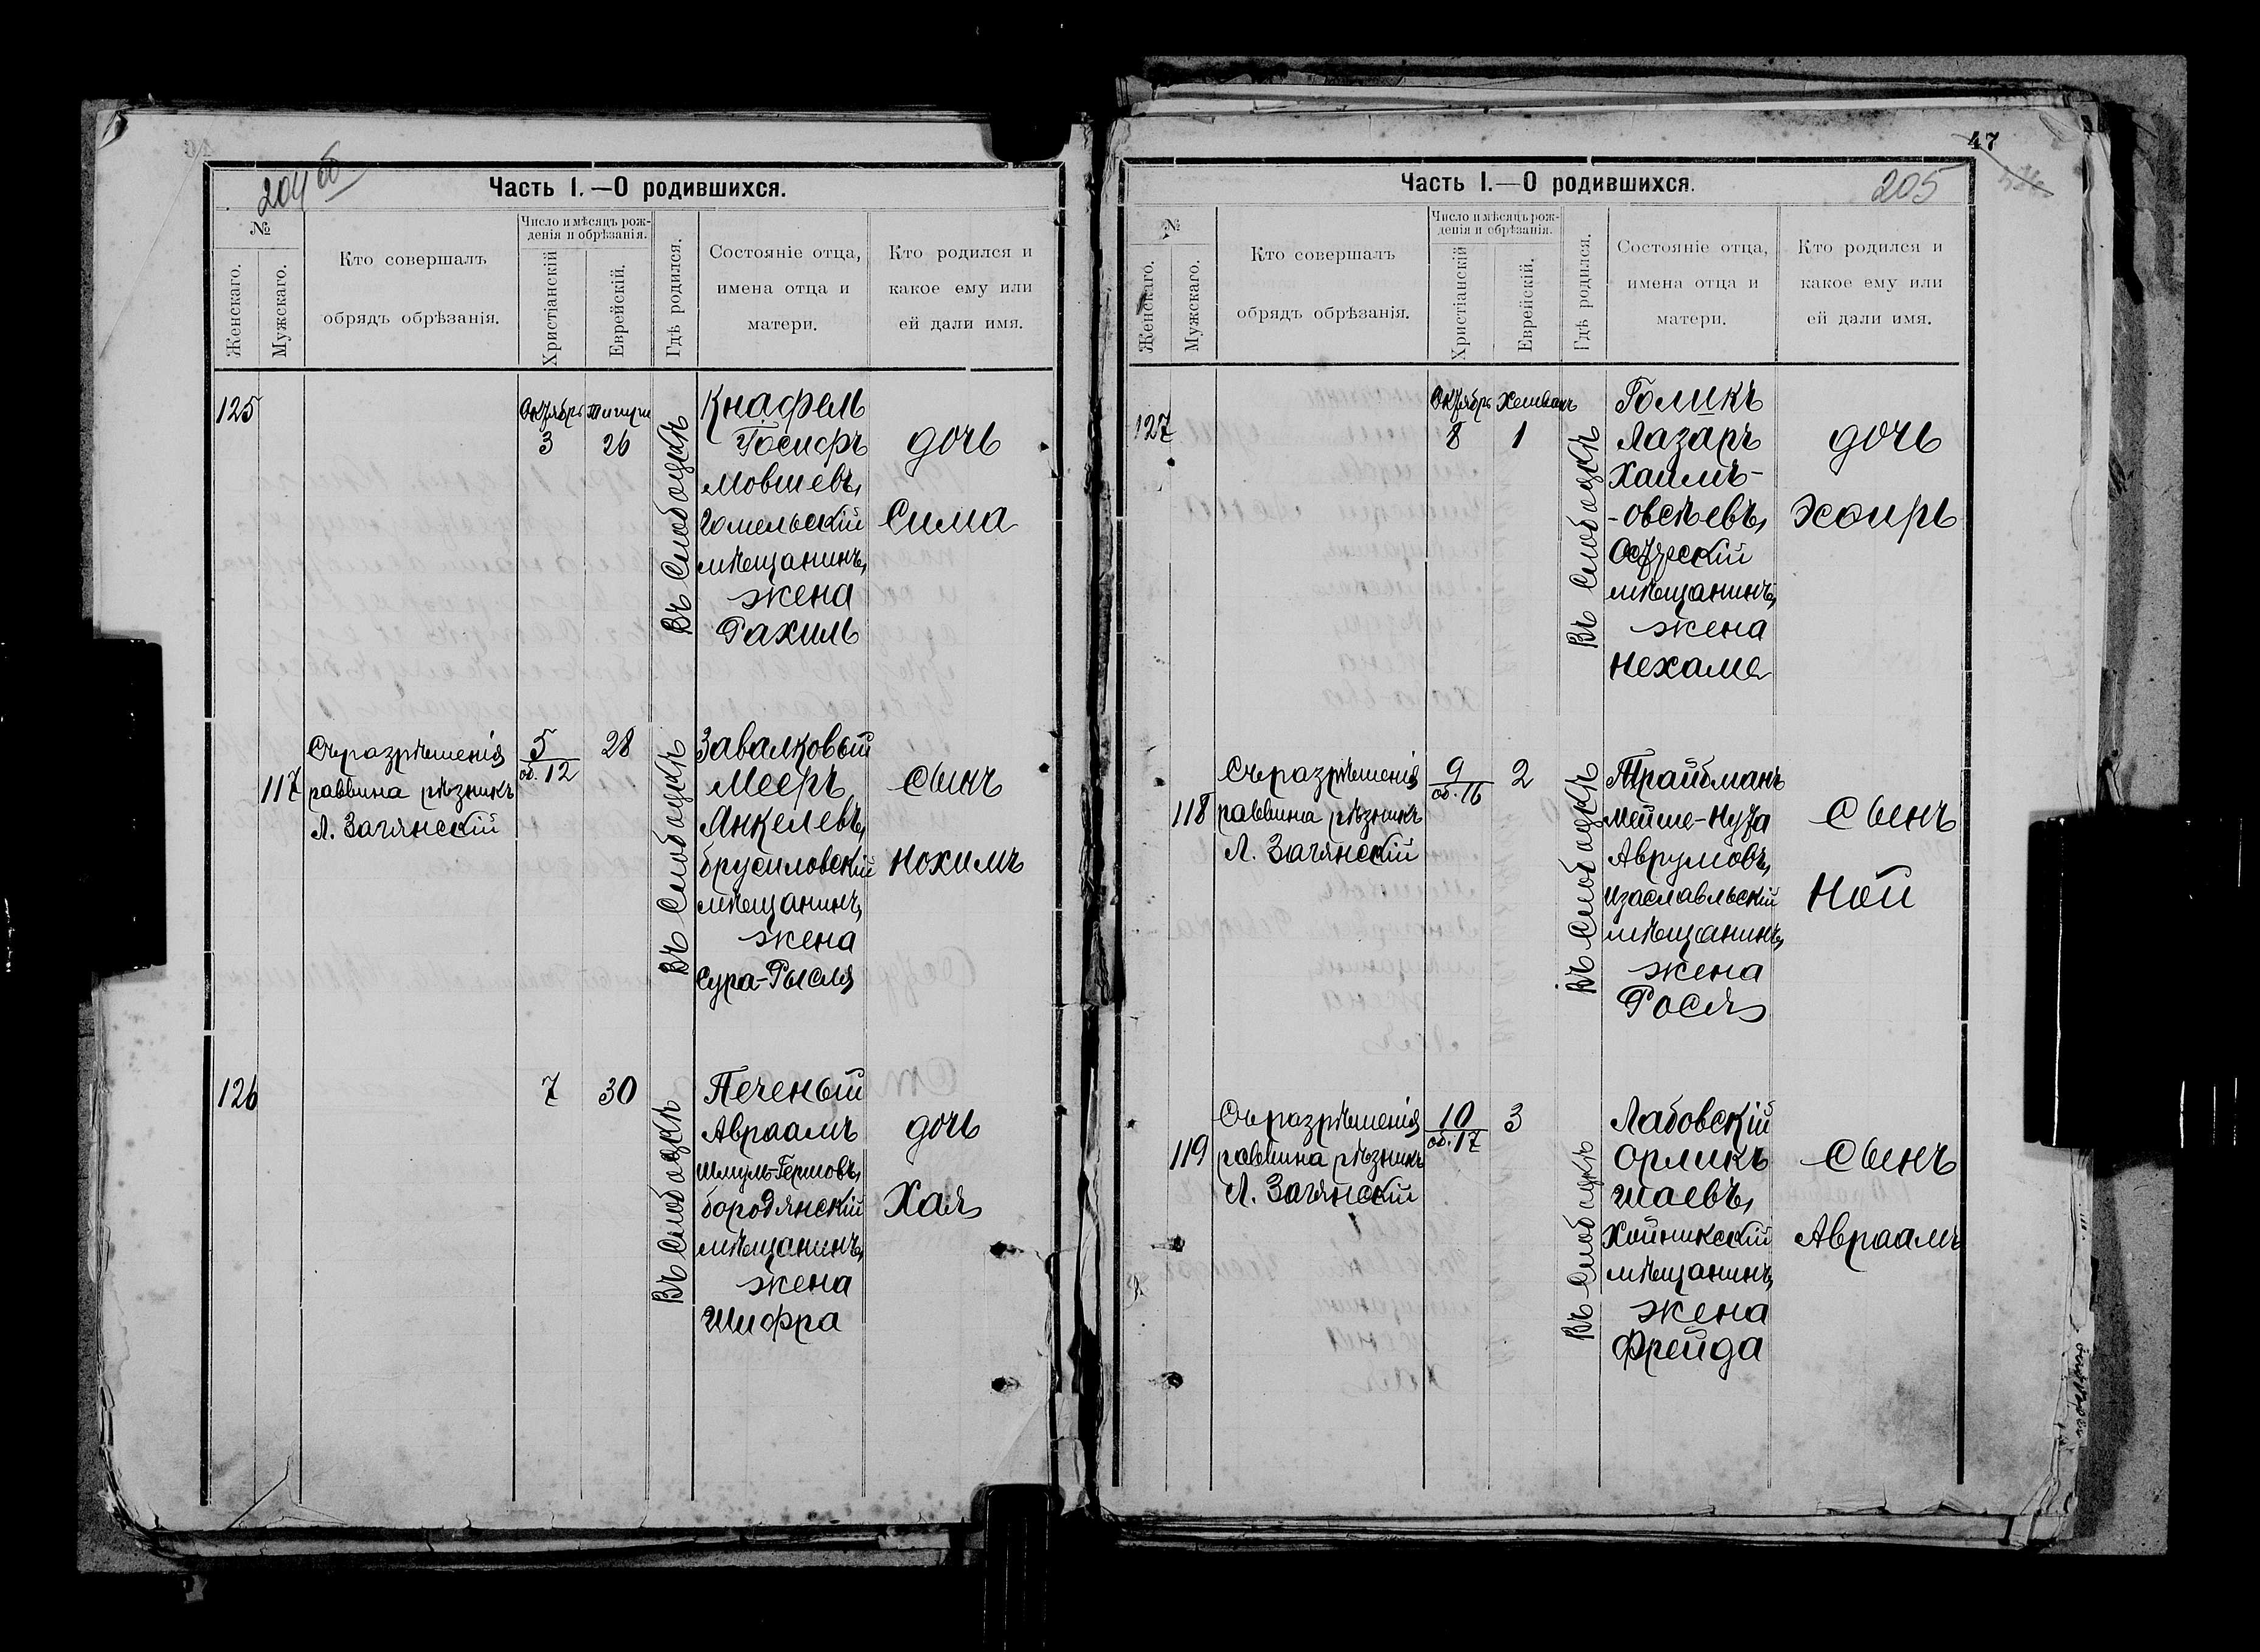 204 об
Часть I.—О родившихся.
№
Женскаго.
Мужскаго.
Кто совершалъ
обрядъ обрѣзанія.
Число и мѣсяцъ рож-
денія и обрѣзанія.
Христіанскій
Еврейскій.
Гдѣ родился.
Состояніе отца,
имена отца и
матери.
Кто родился и
какое ему или
ей дали имя.
125
Октябрь
3
Тишри
26
Въ Слободкѣ
Кнафель
Іосифъ
Мовшевъ,
Гомельскій
мѣщанинъ,
жена
Рахиль
дочь
Сима
117
Съ разрѣшенія
раввина рѣзникъ
Л. Загянскій
5
об. 12
28
Въ Слободкѣ
Завалковый
Мееръ
Янкелевъ,
брусиловскій
мѣщанинъ,
жена
Сура-Рысля
сынъ
Нохимъ
126
7
30
Въ Слободкѣ
Печеный
Авраамъ
Шмуль-Гершовъ,
бородянскій
мѣщанинъ,
жена
Шифра
дочь
Хая
47
205
Часть I.—О родившихся.
№
Женскаго.
Мужскаго.
Кто совершалъ
обрядъ обрѣзанія.
Число и мѣсяцъ рож-
денія и обрѣзанія.
Христіанскій
Еврейскій.
Гдѣ родился.
Состояніе отца,
имена отца и
матери.
Кто родился и
какое ему или
ей дали имя.
127
Октябрь
8
Хешванъ
1
Въ Слободкѣ
Голикъ
Лазаръ
Хаимъ-
-овсѣевъ,
мѣщанинъ,
жена
Нехама
дочь
Эсѳирь
118
Съ разрѣшенія
раввина рѣзникъ
Л. Загянскій
9
об. 16
2
Въ Слободкѣ
Трайбманъ
Мейше-Нута
Аврумовъ,
Изаславльскій
мѣщанинъ,
жена
Рося
сынъ
Ной
119
Съ разрѣшенія
раввина рѣзникъ
Л. Загянскій
10
об. 17
3
Въ Слободкѣ
Лабовскій
Орликъ
Шаевъ,
Хойникскій
мѣщанинъ,
жена
Фрейда
сынъ
Авраамъ